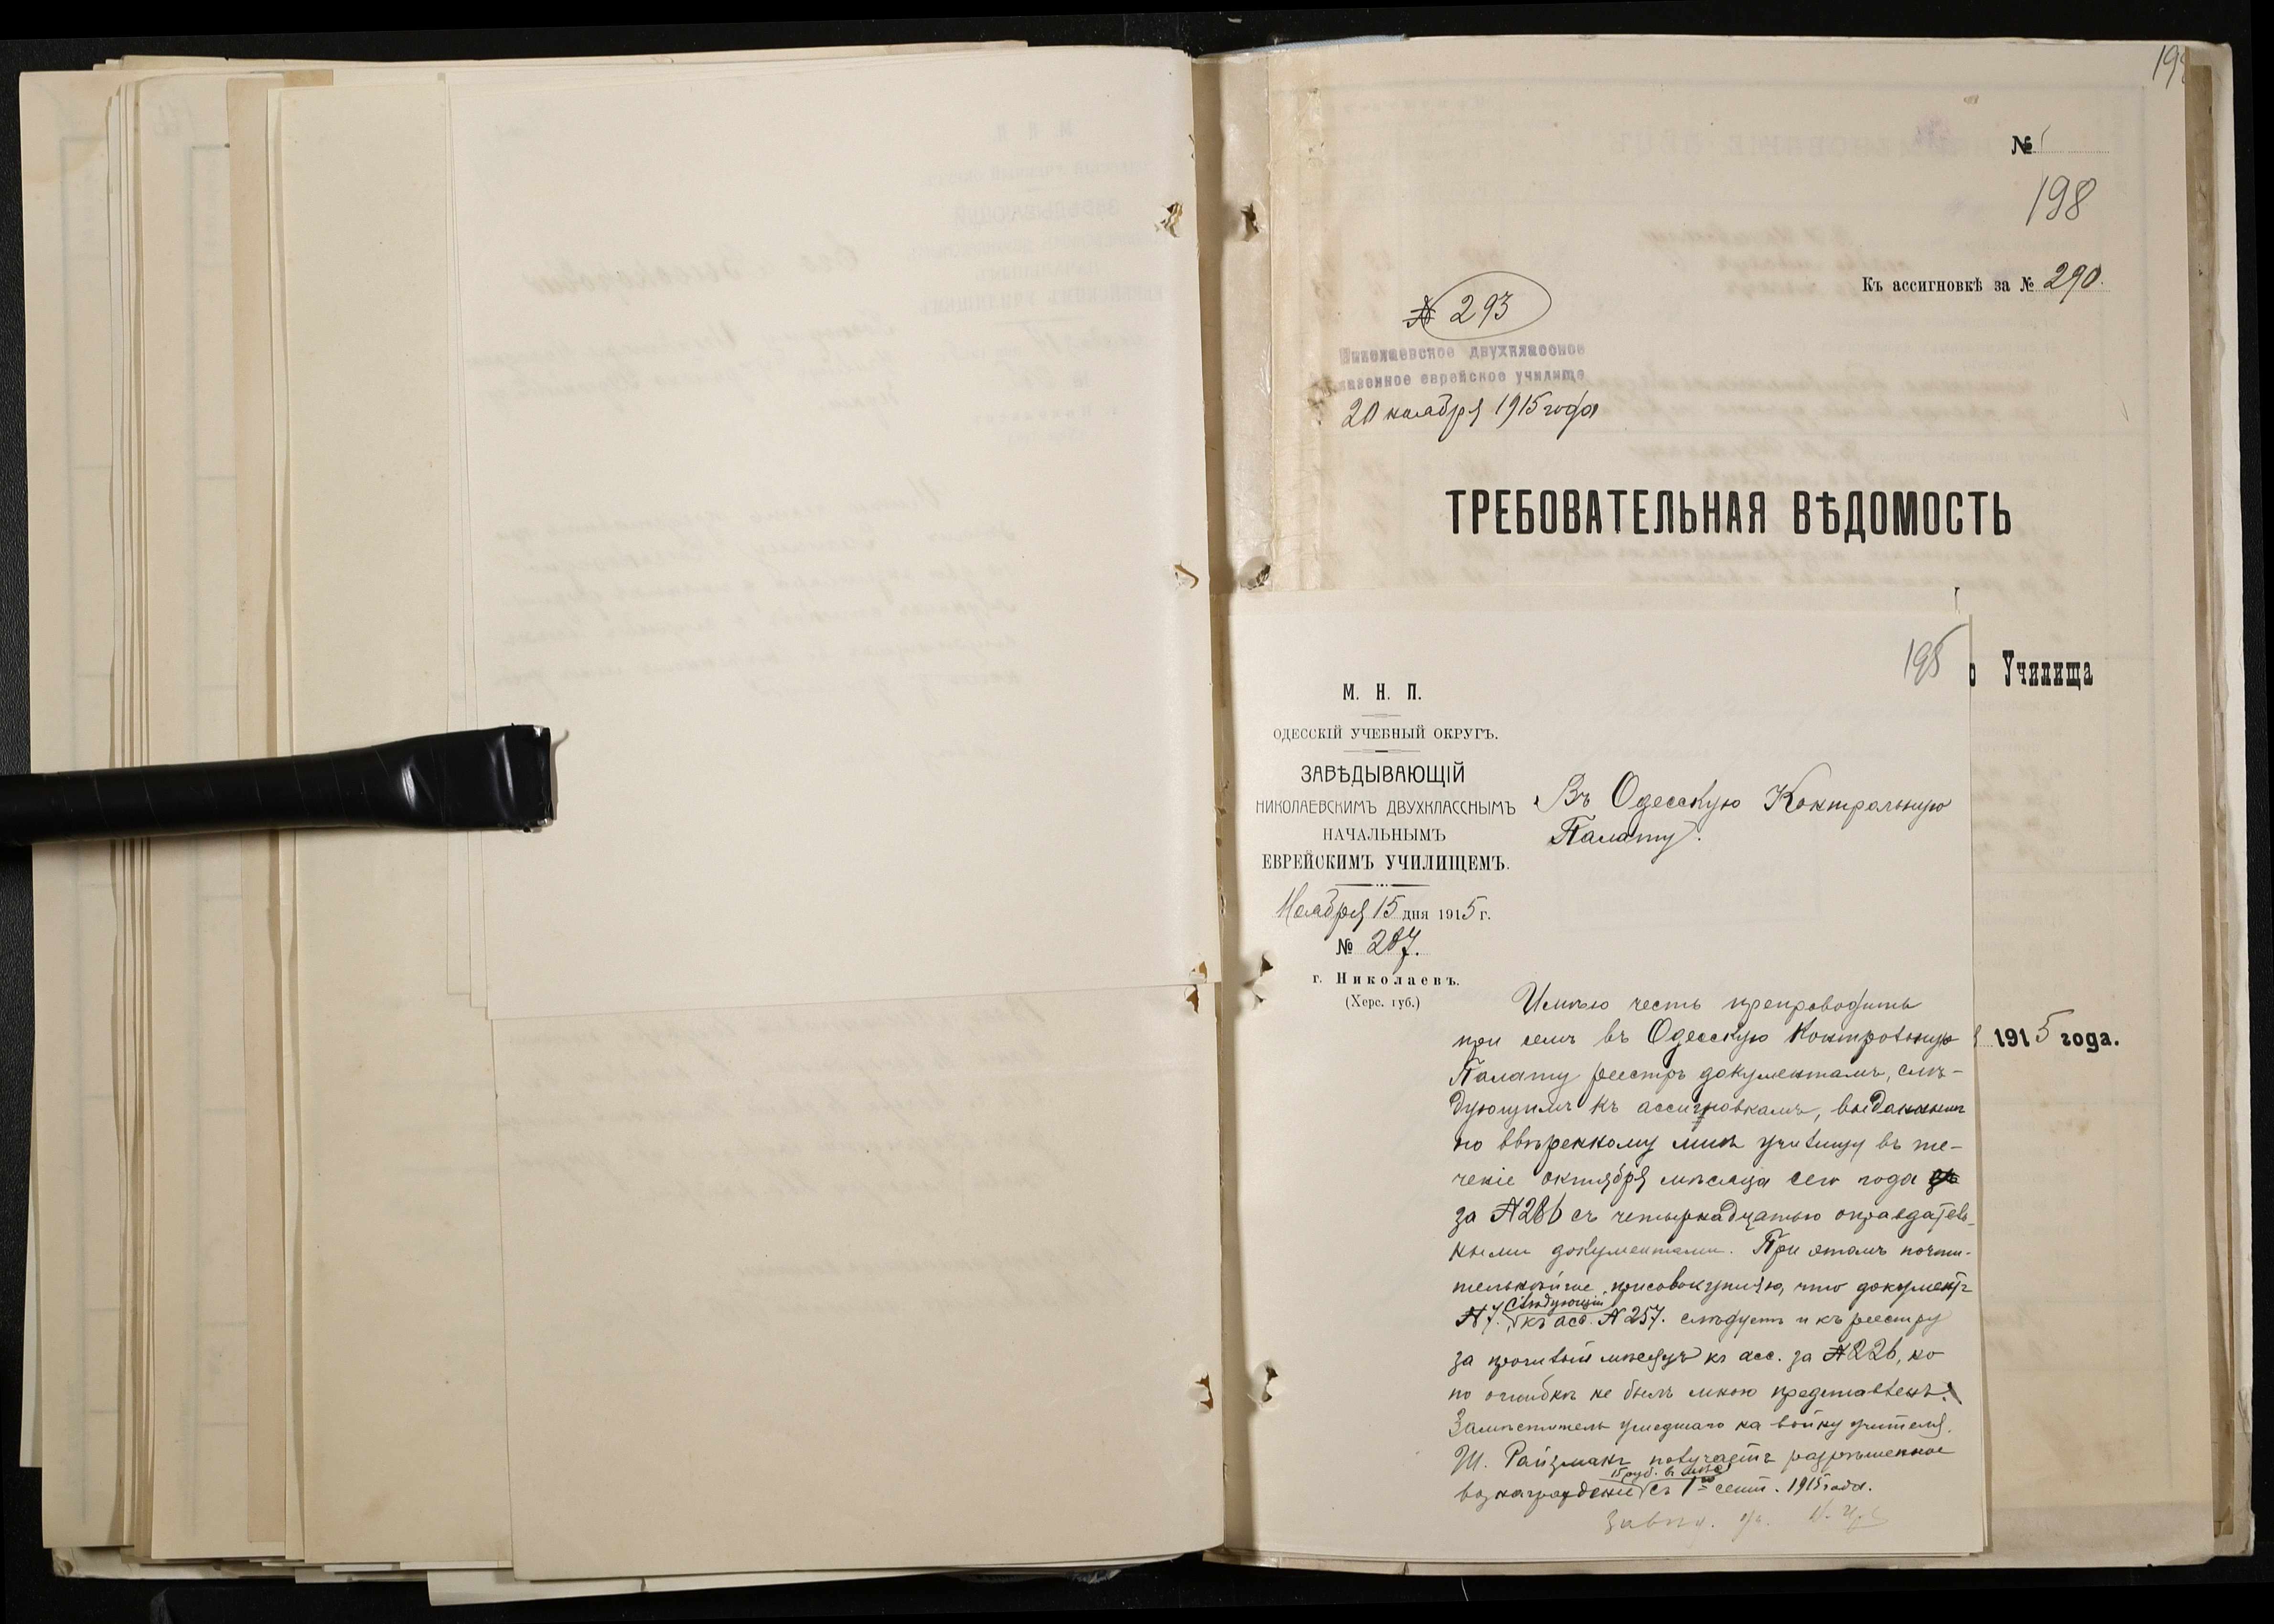 198
№
198
Къ ассигновкѣ за № 290.
№ 293
Николаевское двухклассное
казенное еврейское училище
20 ноября 1915 года
ТРЕБОВАТЕЛЬНАЯ ВѢДОМОСТЬ
о Училища
1915 года.
195
М. Н. П.
ОДЕССКІЙ УЧЕБНЫЙ ОКРУГЪ.
ЗАВѢДЫВАЮЩІЙ
НИКОЛАЕВСКИМЪ ДВУХКЛАССНЫМЪ
НАЧАЛЬНЫМЪ
ЕВРЕЙСКИМЪ УЧИЛИЩЕМЪ.
Ноября 15 дня 1915 г.
№ 287.
г. Николаевъ.
(Херс. губ.)
Въ Одесскую Контрольную
Палату.
Имѣю честь препроводить
при семъ въ Одесскую Контрольную
Палату реестръ документамъ, слѣ-
дующимъ къ ассигновкамъ, выданнымъ
по ввѣренному мнѣ училищу въ те-
ченіе октября мѣсяца сего года
за № 286 съ четырнадцатью оправдатель-
ными документами. При этомъ почти-
тельнѣйше присовокупляю, что документъ
№ 7. слѣдующій къ асс. № 257. слѣдуетъ и къ реестру
за прошлый мѣсяцъ къ асс. за № 226, но
по ошибкѣ не былъ мною представленъ.
Замѣститель ушедшаго на войну учителя.
Ш. Райзманъ получаетъ разрѣшенное
вознагражденіе 15 руб. въ мѣс. съ 1го сент. 1915 года.
Завѣд. уч.